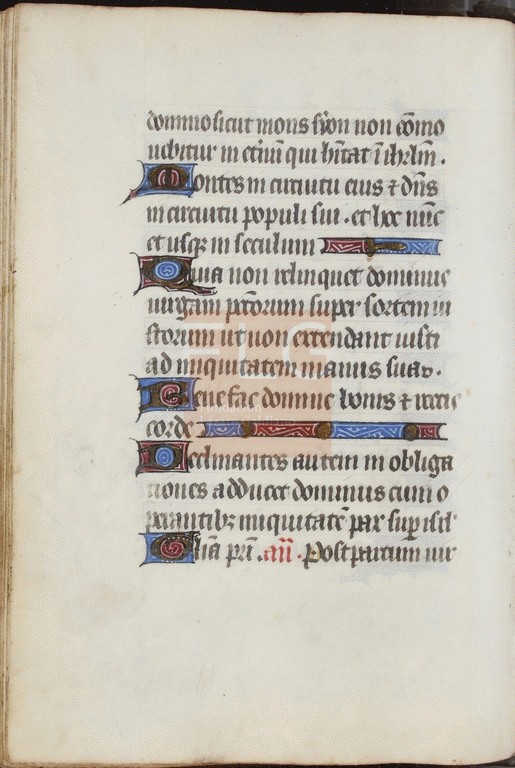 domino sicut mons syon non cōmo
uebitur in et̄num qui hītat ī ihrlm̄ .
Montes in circuitu eius ⁊ dn̄s
in circuitu populi sui . et hoc nūc
et usqꝫ in seculum
Quia non relinquet dominus
uirgam pctōrum super sortem iu
storum ut non extendant iusti
ad iniquitatem manus suas .
Benefac domine bonis ⁊ rectis
corde
Declinantes autem in obliga
tiones adducet dominus cum o
perantibꝫ iniquitatē pax sup̄ isrl̄
Gl̄ia pr̄i . an̄ . Post partum uir